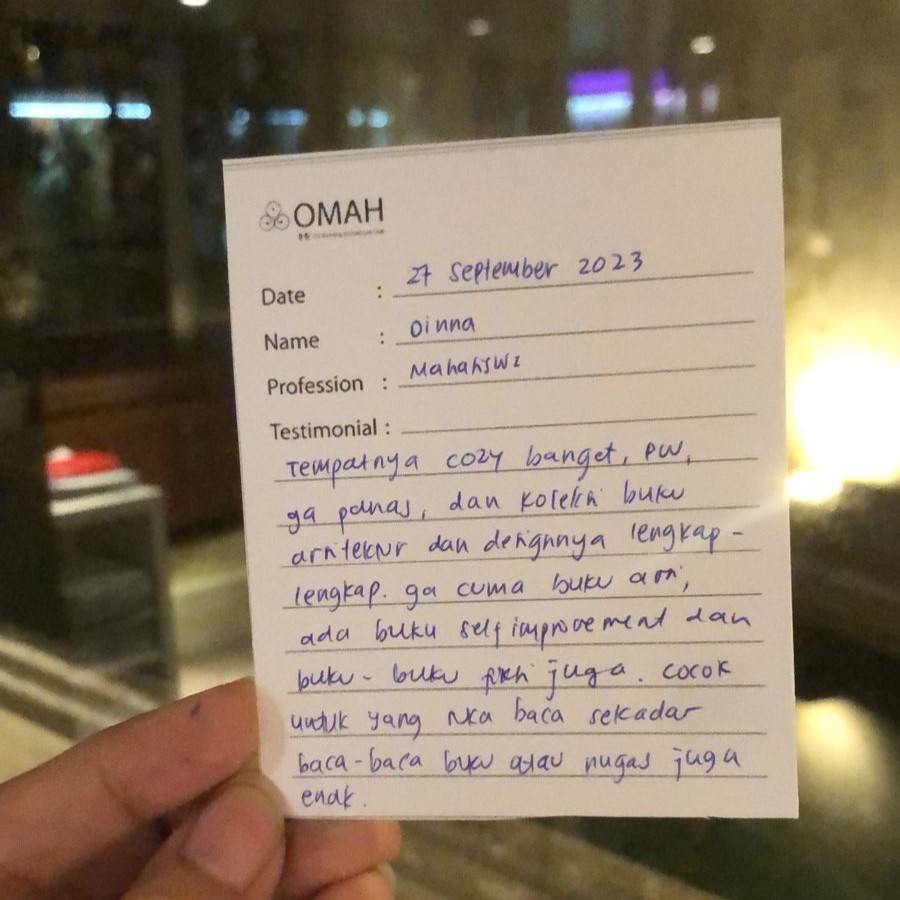 OMAH
Date : 27 September 2023
Name : Dinna
Profession : Mahasiswi
Testimonial :
Tempatnya cozy banget, PW,
ga panas, dan koleksi buku
arsitektur dan designnya lengkap-
lengkap. ga cuma buku arsi,
ada buku self improvement dan
buku-buku fiksi juga. cocok
untuk yang suka baca sekadar
baca-baca buku atau nugas juga
enak.